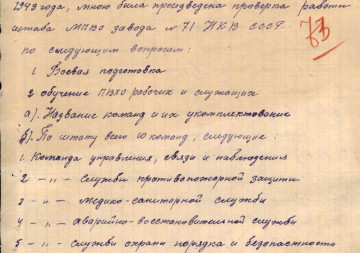 1943 года, мною была произведена проверка работы
штаба МПВО завода № 71 НКВ СССР.
по следующим вопросам:
1. Боевая подготовка
2 обучение ПВХО рабочих и служащих
а). Название команд и их укомплектование
б). По штату всего 10 команд, следующие:
1. Команда управления, связи и наблюдения
2 — „ — службы противопожарной защиты
3 — „ — медико-санитарной службы
4 — „ — аварийно-восстановительной службы
5 — „ — службы охраны порядка и безопасности